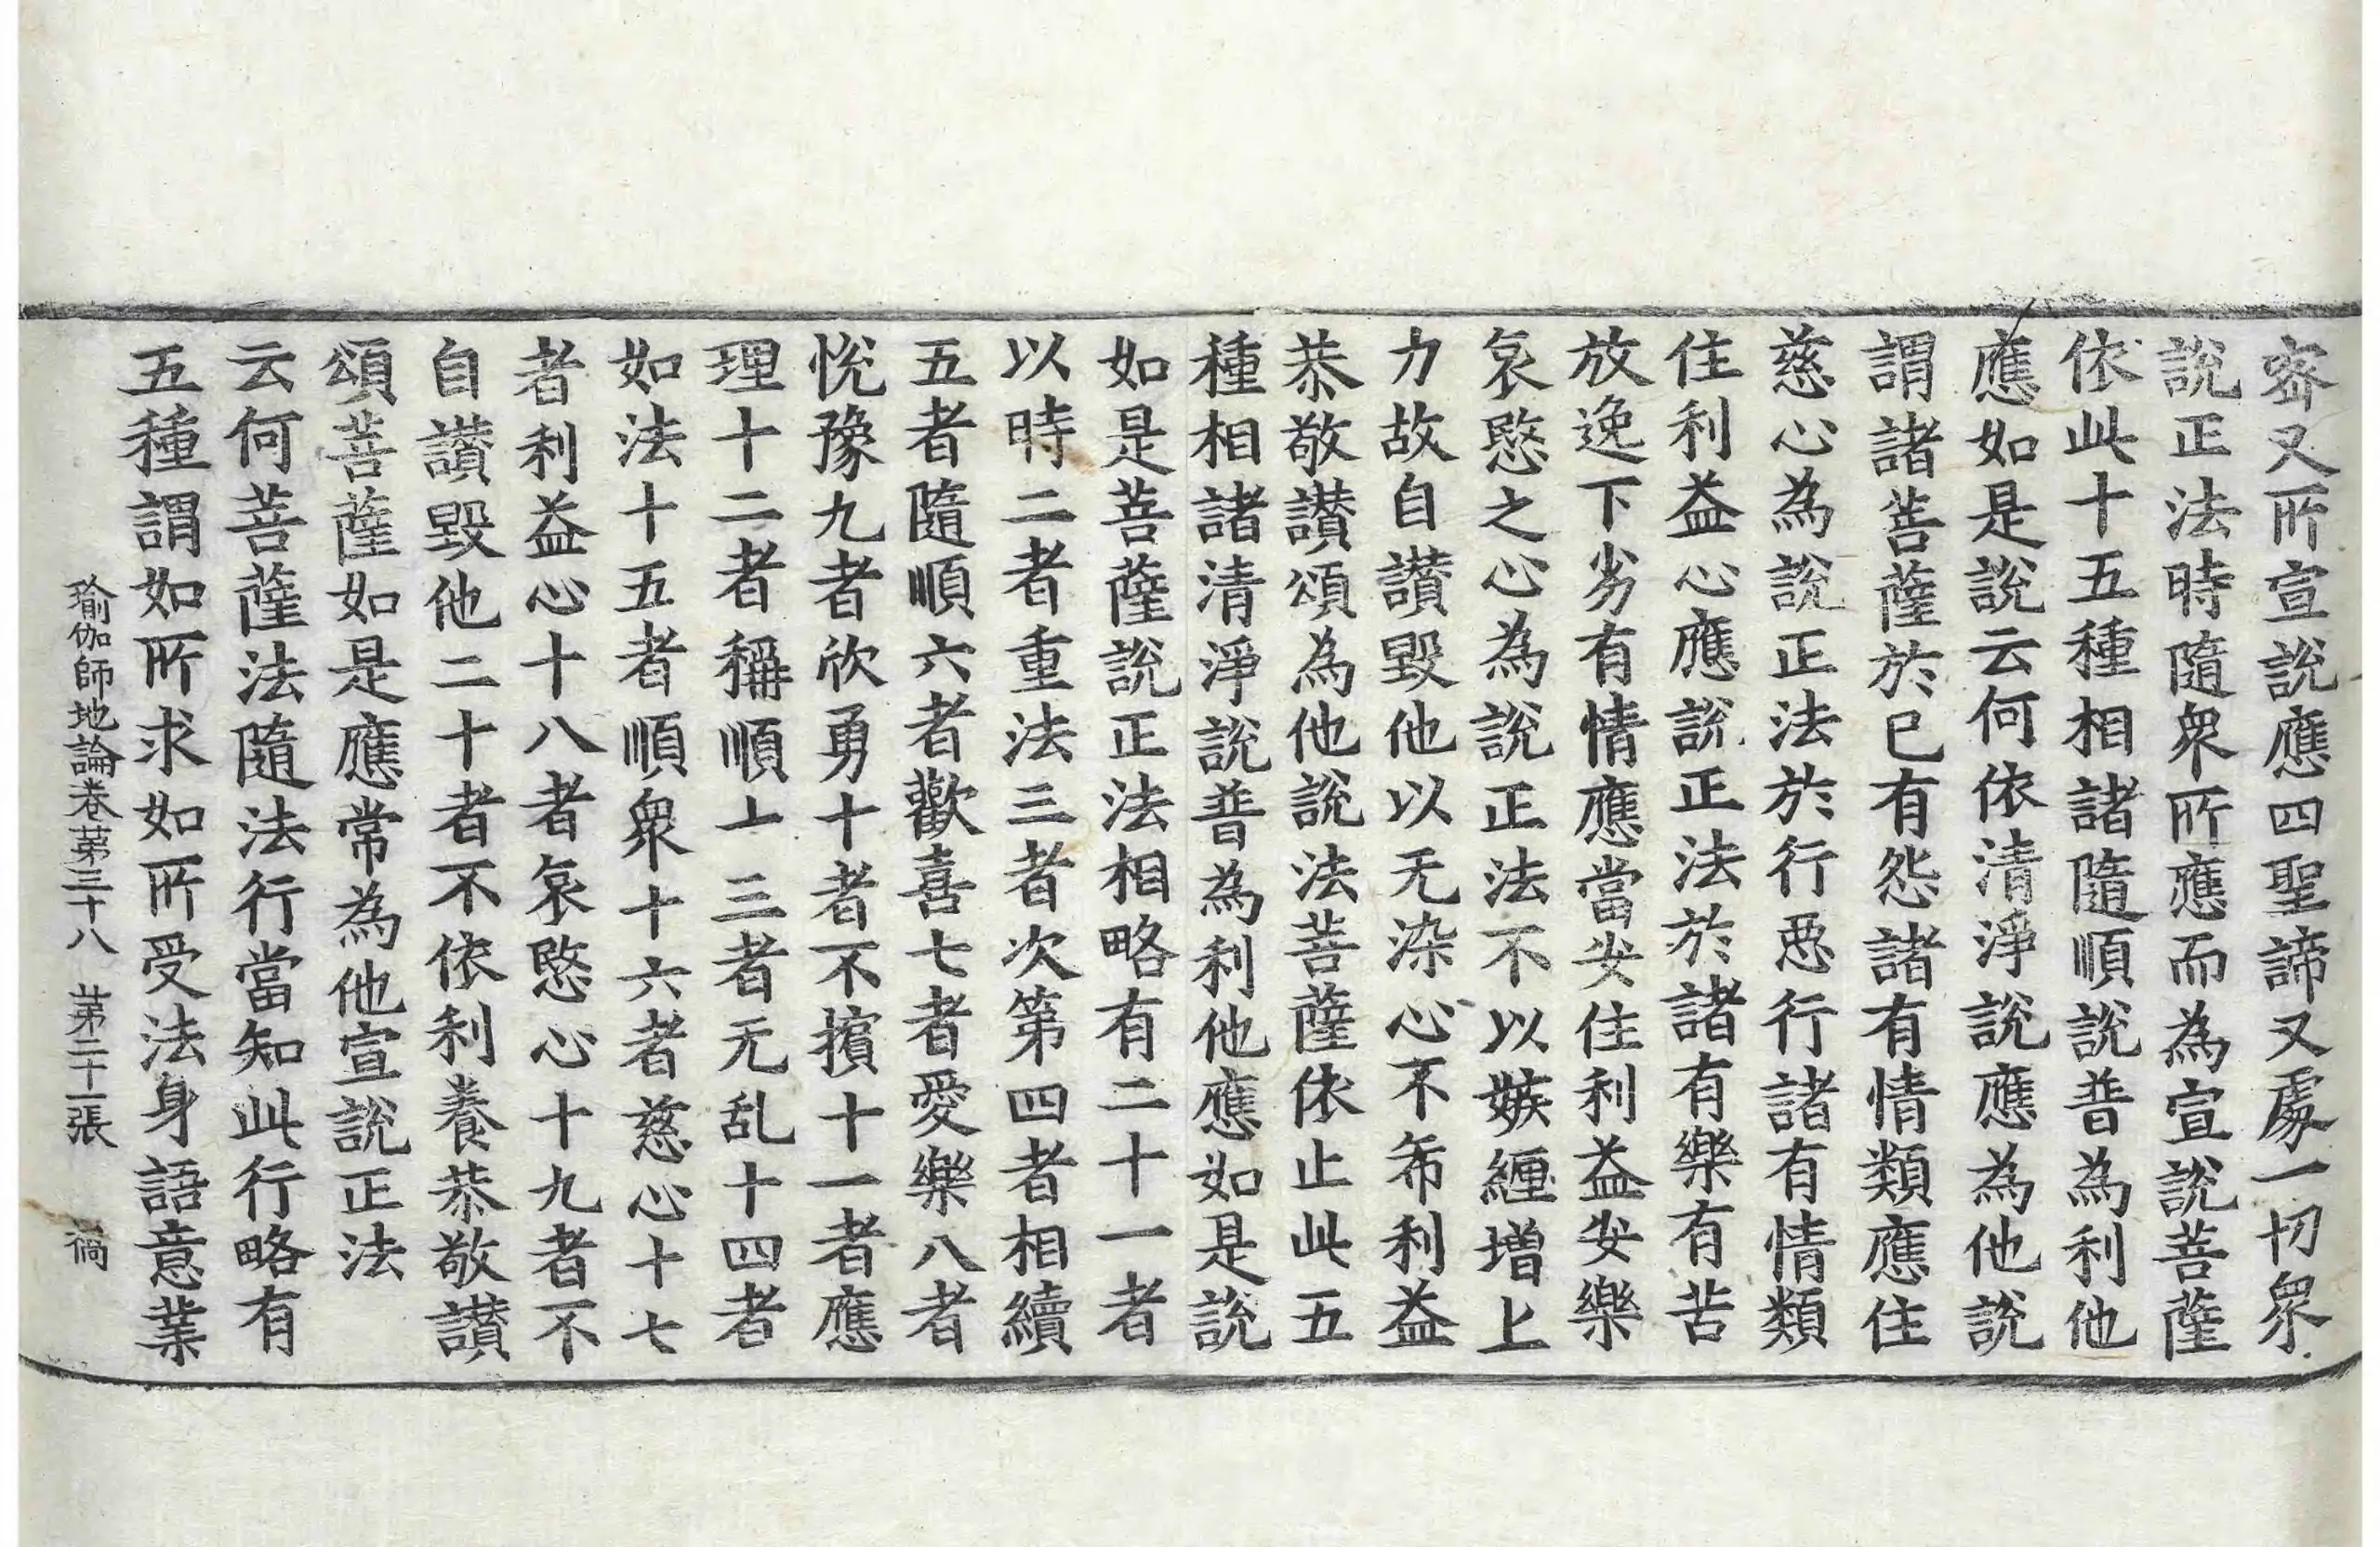 密又所宣說應四聖諦又處一切衆
說正法時隨衆所應而為宣說菩薩
依此十五種相諸隨順說普為利他
應如是說云何依清淨說應為他說
謂諸菩薩於已有怨諸有情類應住
慈心為說正法於行惡行諸有情類
住利益心應說正法於諸有樂有苦
放逸下劣有情應當安住利益安樂
哀愍之心為說正法不以嫉纏增上
力故自讃毀他以无染心不希利益
恭敬讃頌為他說法菩薩依止此五
種相諸清淨說普為利他應如是說
如是菩薩說正法相略有二十一者
以時二者重法三者次第四者相續
五者隨順六者歡喜七者愛樂八者
悅豫九者欣勇十者不擯十一者應
理十二者稱順十三者无乱十四者
如法十五者順衆十六者慈心十七
者利益心十八者哀愍心十九者不
自讃毀他二十者不依利養恭敬讃
頌菩薩如是應常為他宣說正法
云何菩薩法隨法行當知此行略有
五種謂如所求如所受法身語意業
瑜伽師地論卷第三十八 第二十一張 徜